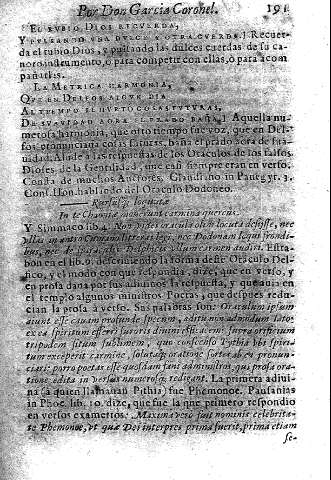 Por Don Garcia Coronel. 191.
EL RVBIO DIOS RECVERDA,
Y PVLSANDO VNA DVLCE Y OTRA CVERDA.] Recuer-
da el rubio Dios, y pulsando las dulces cuerdas de su ca-
noro instrumento, ò para competir con ellas, ò para acom
pañarlas.
LA METRICA HARMONIA,
QVE EN DELFOS ALGVN DIA
AL TIEMPO LE HVRTÒ COSAS FVTVRAS,
DE SVAVIDAD AORA EL PRADO BAÑA.] Aquella nu-
merosa harmonia, que otro tiempo fue voz, que en Del-
fos pronunciaua cosas futuras, baña el prado aora de sua-
uidad. Alude a las respuestas de los Oraculos de los falsos
Dioses de la Gentilidad, que casi siempre eran en verso.
Consta de muchos Auctores. Claudiano in Panegyr. 3.
Cons. Hon. hablando del Oraculo Dodoneo.
Rursusq; locutæ
In te Chaoniæ mouerunt carmina quercus.
Y Simmaco lib. 4. Non vides oracula olim locuta desiisse, nec
vllas in antro Cumano litteras legi, nec Dodonam loqui frondi-
bus, nec de spiraculis Delphicis vllum carmen audiri. Estra-
bon en el lib. 9. descriuiendo la forma deste Oraculo Del-
fico, y el modo con que respondia, dize, que en verso, y
en prosa daua por sus adiuinos la respuesta, y que auia en
el templo algunos ministros Poetas, que despues redu-
cian la prosa à verso. Sus palabras son: Oraculum ipsum
aiunt esse cauum profundè specum, aditu non admodum lato,
ex ea spiritum efferri furoris diuini esse dicem: supra orificium
tripodem situm sublimem, quo conscenso Pythia vbi spiri-
tum exceperit carmine, solutaq; oratione sortes ab ea pronun-
ciari: porro poetas esse quosdam fani administros qui prosa ora-
tione edita in versus numerosq; redigant. La primera adiui-
na (à quien llamauan Pithia) fue Phemonoe. Pausanias
in Phoc. lib. 10. dize, que fue la que primero respondiò
en versos exametros: Maxima verò est nominis celebrita-
te Phemonoe, vt quæ Dei interpres prima fuerit, prima etiam
se-